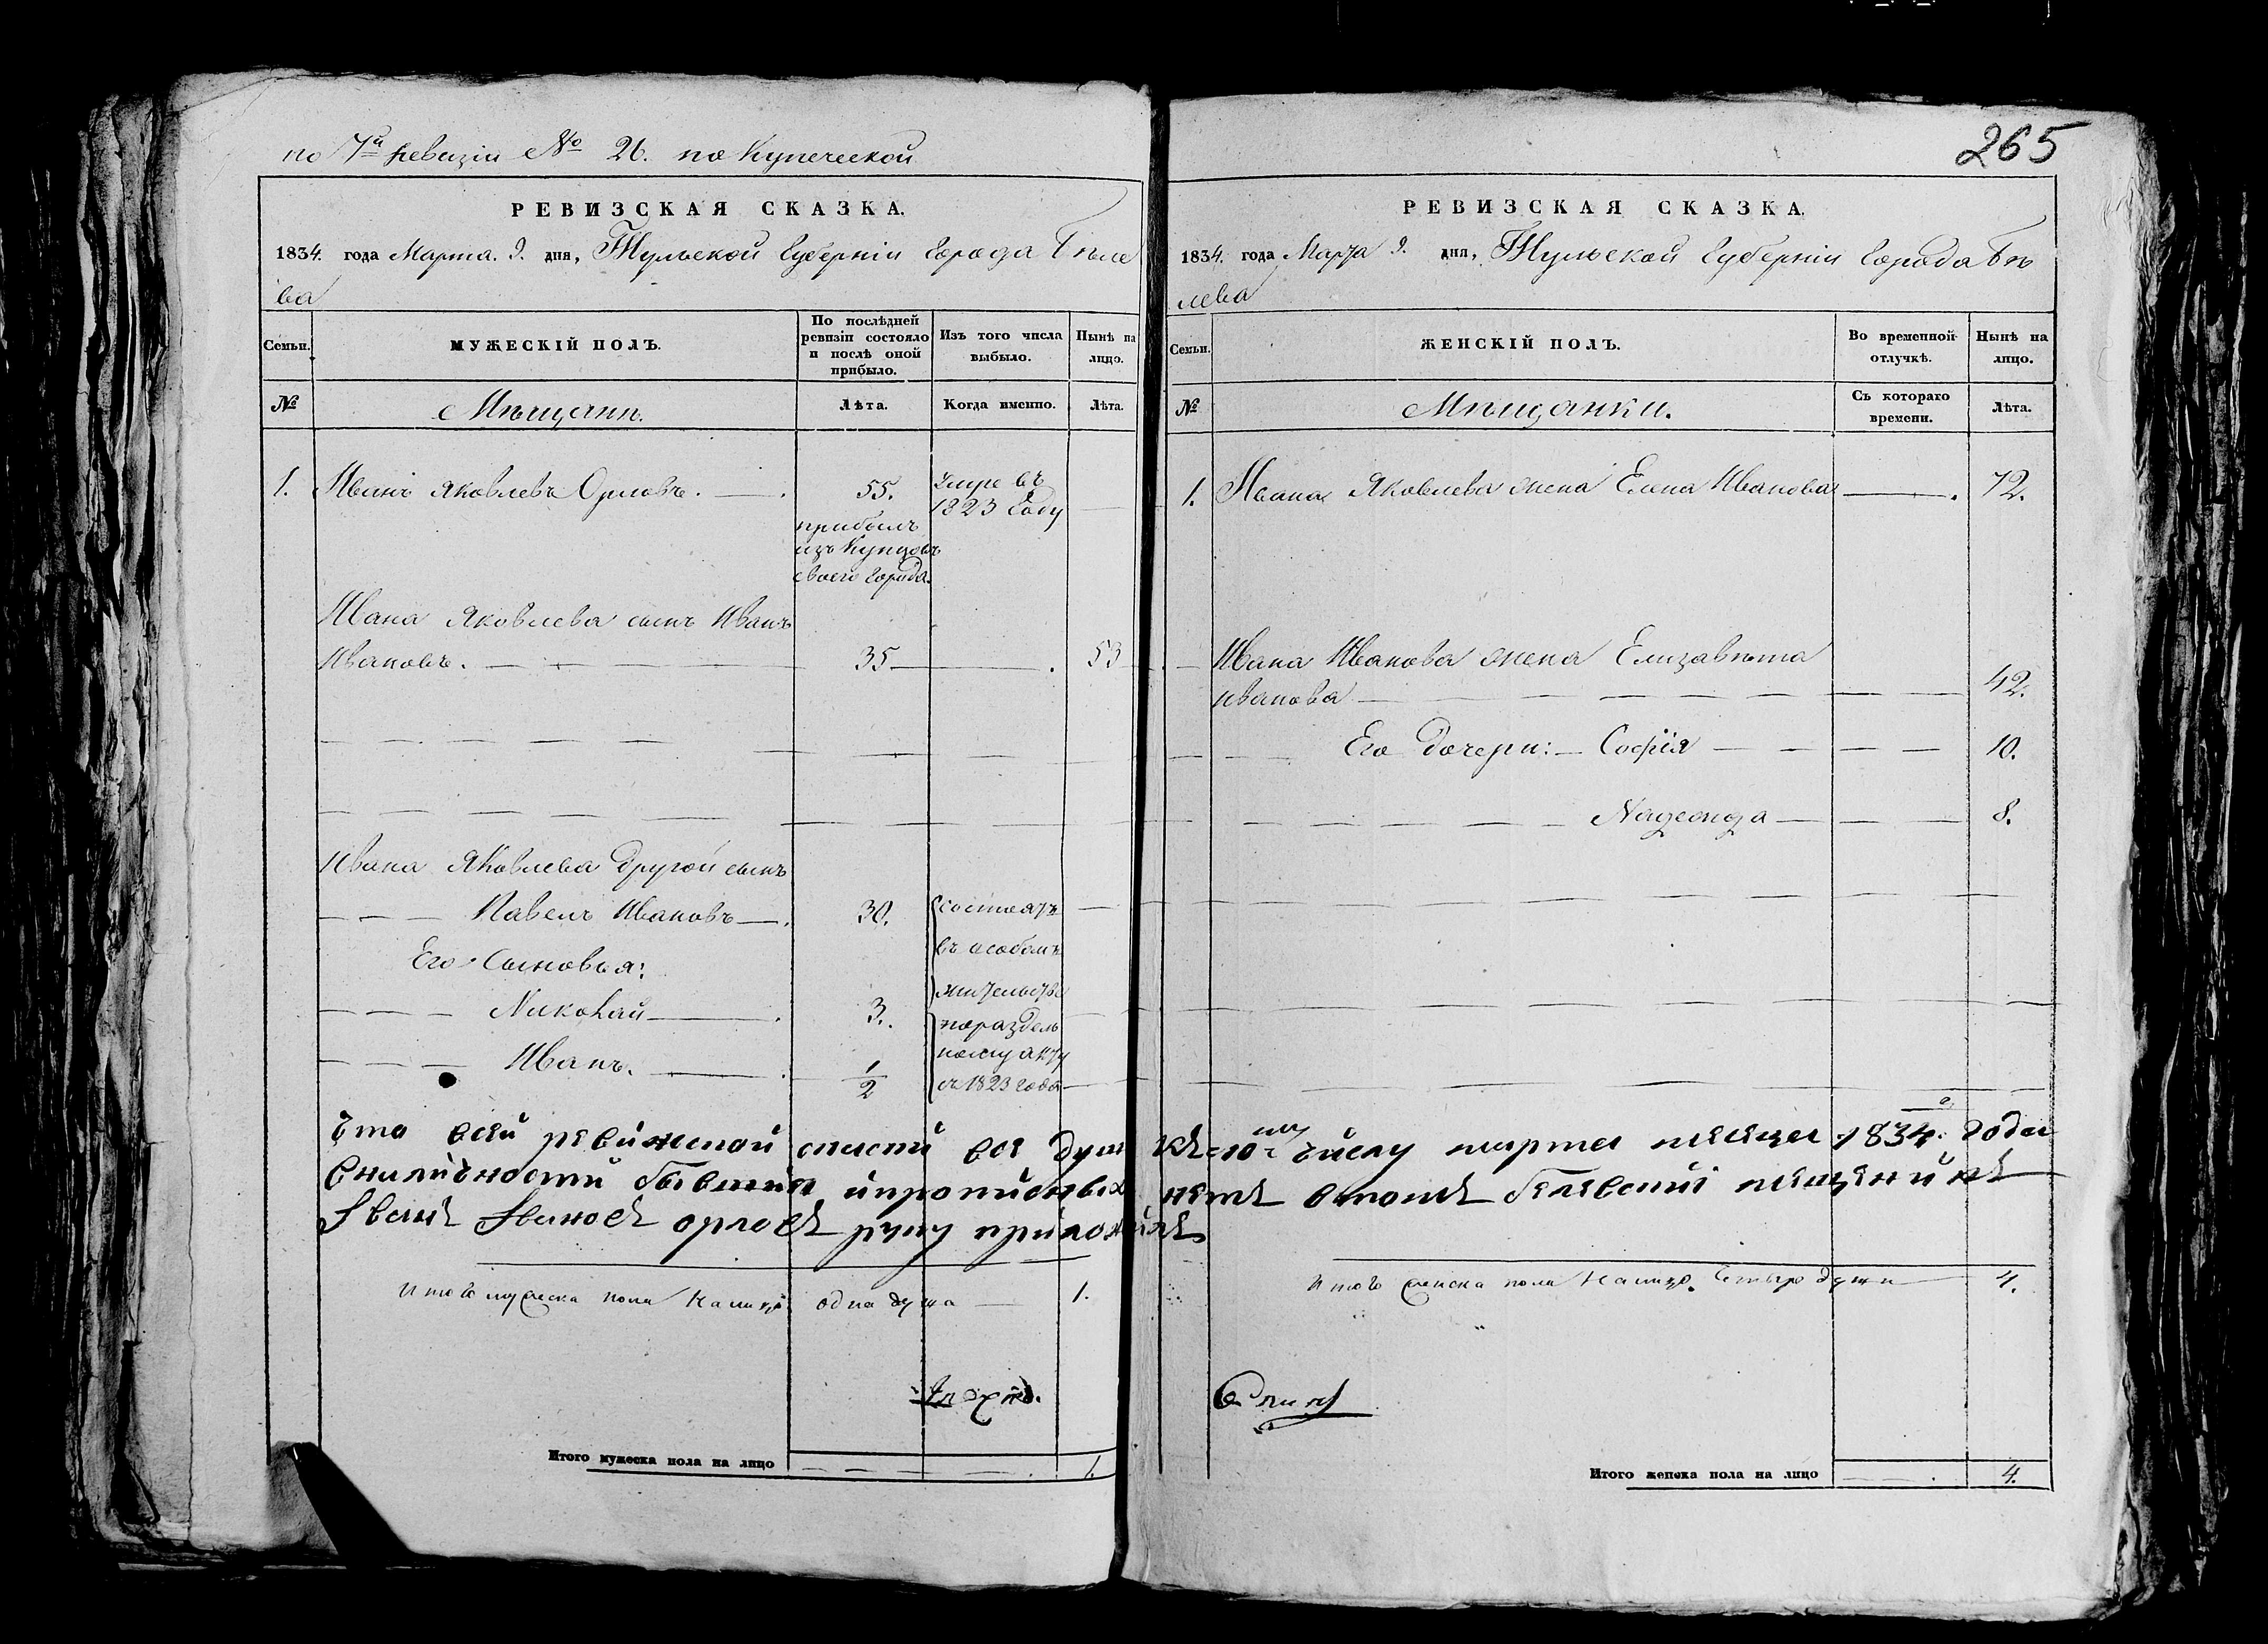 по 7й ревизіи № 26. по Купеческой
РЕВИЗСКАЯ СКАЗКА.
1834. года Марта. 9. дня, Тульской Губерніи Города Бѣле
ва
Семьи.
МУЖЕСКІЙ ПОЛЪ.
По послѣдней
ревизіи состояло
и послѣ оной
прибыло.
Изъ того числа
выбыло.
Нынѣ на
лицо.
№
Мѣщани.
Лѣта.
Когда именно.
Лѣта.
1. Иванъ Яковлевъ Орловъ.
55.
прибылъ
изъ Купцовъ
своего города.
умре въ
1823 Году
Ивана Яковлева сынъ Иванъ
Ивановъ.
35
53
Ивана Яковлева другой сынъ
Павелъ Ивановъ
30.
Его Сыновья:
Николай
3.
Иванъ.
1/2
состоятъ
въ особомъ
жительстве
пораздель
ному акту
съ 1823 года
Итого мужеска пола налицо одна душа 1.
Итого мужеска пола на лицо
1.
265
РЕВИЗСКАЯ СКАЗКА.
1834. года Марта 9. дня, Тульской Губерніи Города Бѣ
лева
Семьи.
ЖЕНСКІЙ ПОЛЪ.
Во временной
отлучкѣ.
Нынѣ на
лицо.
№
Мѣщанки.
Съ котораго
времени.
Лѣта.
1. Ивана Яковлева жена Елена Иванова
72.
Ивана Иванова жена Елизавѣта
иванова
42.
Его дочери: Софія
10.
Надежда
8.
Что всей ревижской скаски все душ къ 10му числу марта месяца 1834го года
внали́чности бывшия ипрописных нетъ втомъ белевски мещенинъ
Iванъ Iвановъ орловъ руку приложилъ
Итого женска пола налицо. Четыре души 4.
Итого женска пола на лицо
4.